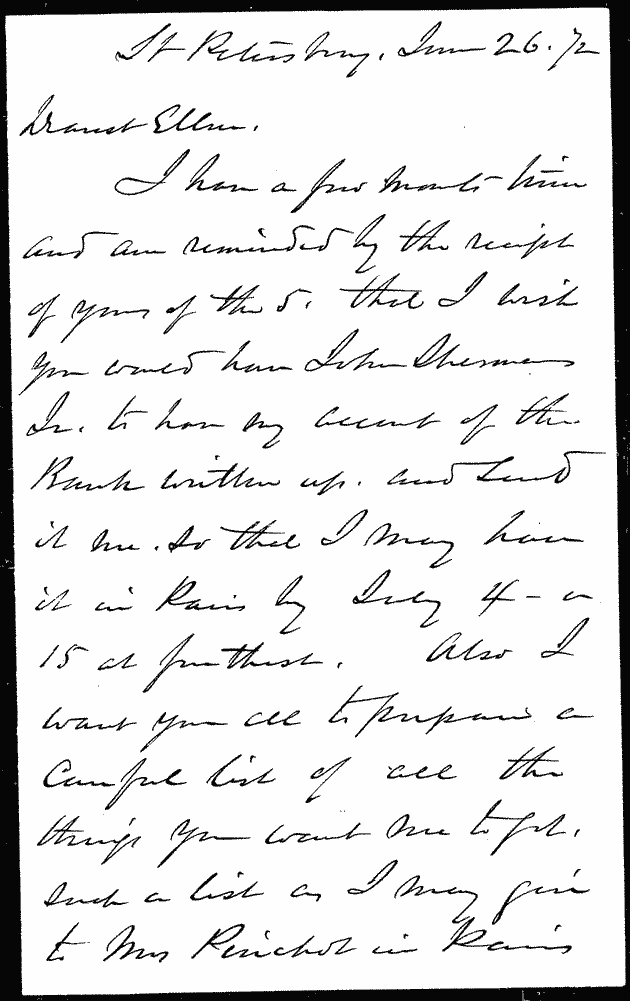 St Petersburg, June 26. 72
Dearest Ellen.
I have a few moments time
and am reminded by the receipt
of yours of the 5. that I wish
you would have John Sherman
Jr. to have my account of the
Bank written up. and send
it me. so that I may have
it in Paris by July 4 - or
15 at furthest. Also I
want you all to prepare a
careful list of all the
things you want me to get,
such a list as I may give
to Mrs Pinchot in Paris